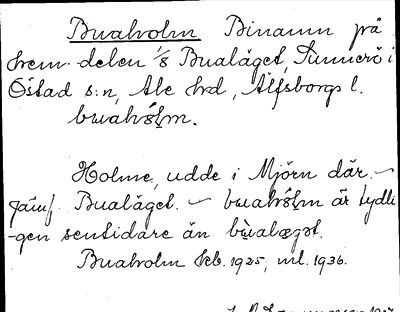 Buaholm Binamn på
hem. delen 1/8 Bualäget, Sunnerö i
Östad s:n, Ale hd, Älfsborgs l.
buahɔ́lm.
Holme, udde i Mjörn där. –
Jämf. Bualäget. – buahɔ́lm är tydli
-gen sentidare än bùalægət.
Buaholm Kb. 1925, ml. 1936.